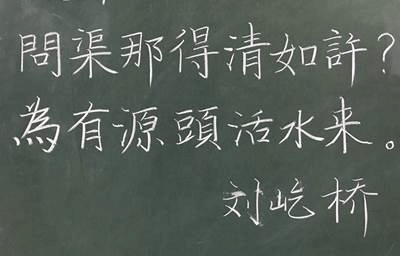 問渠那得清如許？
為有源頭活水来。
刘屹桥